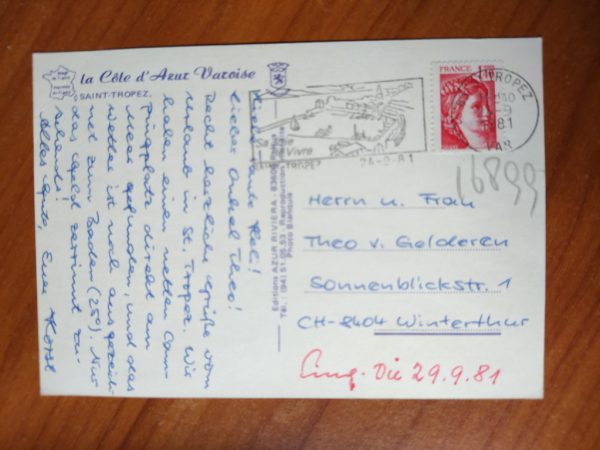 la Côte d'Azur Varoise
SAINT-TROPEZ.
Liebe Tante Heli!
Lieber Onkel Theo!
Recht herzliche Grüße vom
Urlaub in St. Tropez. Wir
haben einen netten Cam-
pingplatz direkt am
Meer gefunden, und das
Wetter ist noch ausgezeich-
net zum Baden (25°). Nur
das Geld zerrinnt zu-
sehends!
Alles Gute, Euer Horst
Editions AZUR RIVIERA - 83600
Tél.: (94) 51.05.53 - Reproduction
Photo Blanquis
Vivre
24-9-81
TROPEZ
81
VAR
FRANCE
16899
Herrn u. Frau
Theo v. Gelderen
Sonnenblickstr. 1
CH-8404 Winterthur
Eing. Die 29.9.81